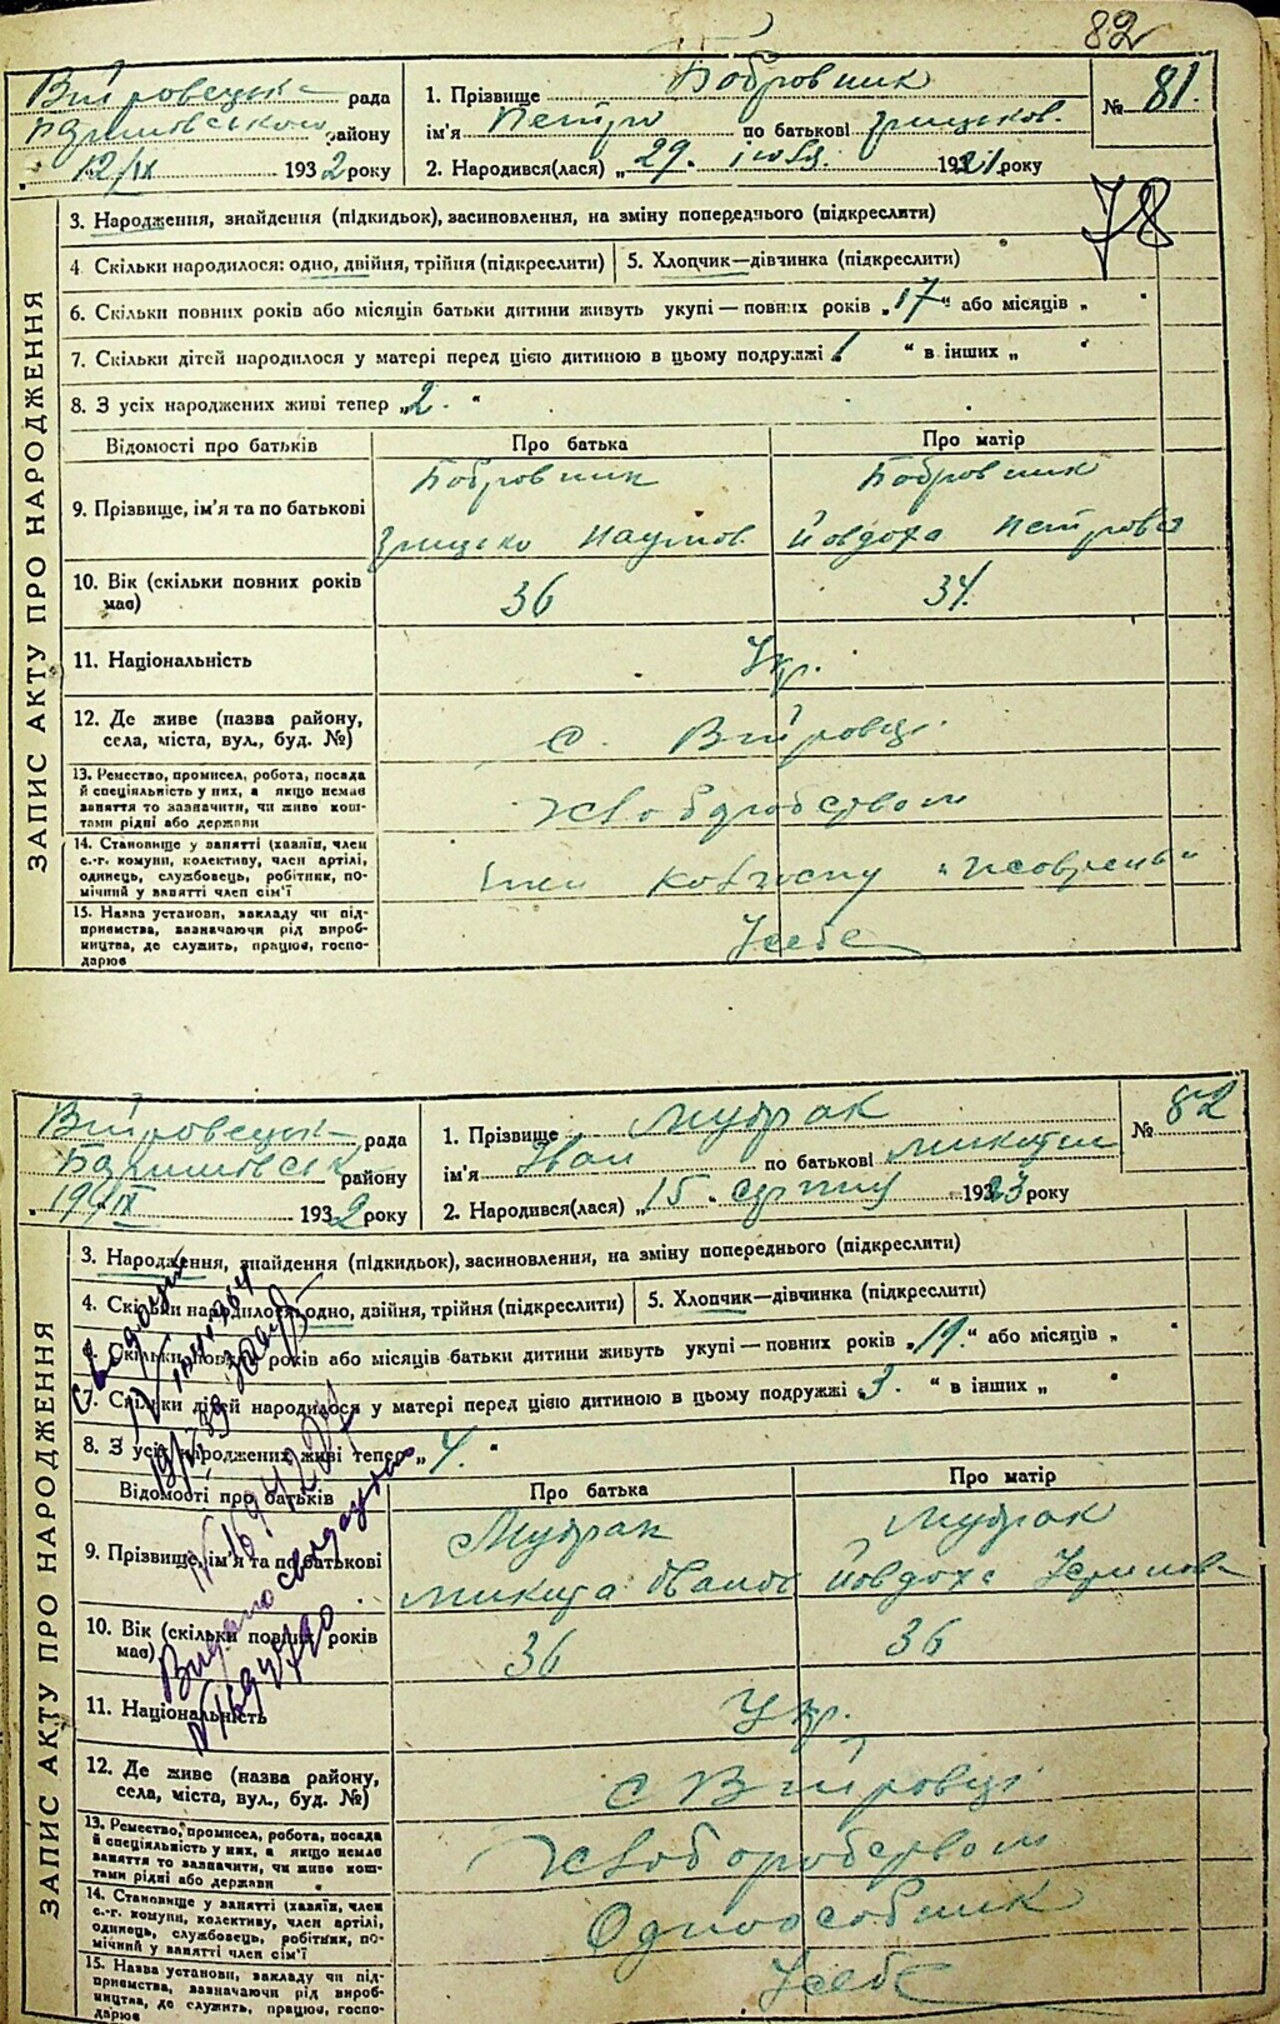 82
Війтовецька рада
району
12/IX 1932 року
1. Прізвище Бобровник
ім'я Петро по батькові Грицьков.
2. Народився(лася) „29" юля 1921 року
№ 81.
78
ЗАПИС АКТУ ПРО НАРОДЖЕННЯ
3. Народження, знайдення (підкидьок), засиновлення, на зміну попереднього (підкреслити)
4. Скільки народилося: одно, двійня, трійня (підкреслити)
5. Хлопчик—дівчинка (підкреслити)
6. Скільки повних років або місяців батьки дитини живуть укупі — повних років „17" або місяців „ "
7. Скільки дітей народилося у матері перед цією дитиною в цьому подружжі „1 " в інших „ "
8. З усіх народжених живі тепер „2. "
Відомості про батьків Про батька Про матір
9. Прізвище, ім'я та по батькові
Бобровник Бобровник
Грицько Наумов. Йовдоха Петрова
10. Вік (скільки повних років має)
36 34.
11. Національність
Укр.
12. Де живе (назва району, села, міста, вул., буд. №)
с.
13. Ремество, промисел, робота, посада й спеціяльність у них, а якщо немає заняття то зазначити, чи живе коштами рідні або держави
Хліборобством
14. Становище у занятті (хазяїн, член с.-г. комуни, колективу, член артілі, одинець, службовець, робітник, помічний у занятті член сім'ї
член колгоспу
15. Назва установи, закладу чи підприємства, зазначаючи рід виробництва, де служить, працює, господарює
У себе
рада
району
19/IX 1932 року
1. Прізвище Мудрак
ім'я Іван по батькові Микитин
2. Народився(лася) „15" серпня 1923 року
№ 82
ЗАПИС АКТУ ПРО НАРОДЖЕННЯ
3. Народження, знайдення (підкидьок), засиновлення, на зміну попереднього (підкреслити)
4. Скільки народилося: одно, двійня, трійня (підкреслити)
5. Хлопчик—дівчинка (підкреслити)
6. Скільки повних років або місяців батьки дитини живуть укупі — повних років „19." або місяців „ "
7. Скільки дітей народилося у матері перед цією дитиною в цьому подружжі „3. " в інших „ "
8. З усіх народжених живі тепер „4. "
Відомості про батьків Про батька Про матір
9. Прізвище, ім'я та по батькові
Мудрак Мудрак
Микита Іванов Йовдоха
10. Вік (скільки повних років має)
36 36
11. Національність
Укр.
12. Де живе (назва району, села, міста, вул., буд. №)
с
13. Ремество, промисел, робота, посада й спеціяльність у них, а якщо немає заняття то зазначити, чи живе коштами рідні або держави
Хліборобством
14. Становище у занятті (хазяїн, член с.-г. комуни, колективу, член артілі, одинець, службовець, робітник, помічний у занятті член сім'ї
Одноосібник
15. Назва установи, закладу чи підприємства, зазначаючи рід виробництва, де служить, працює, господарює
У себе
Видано